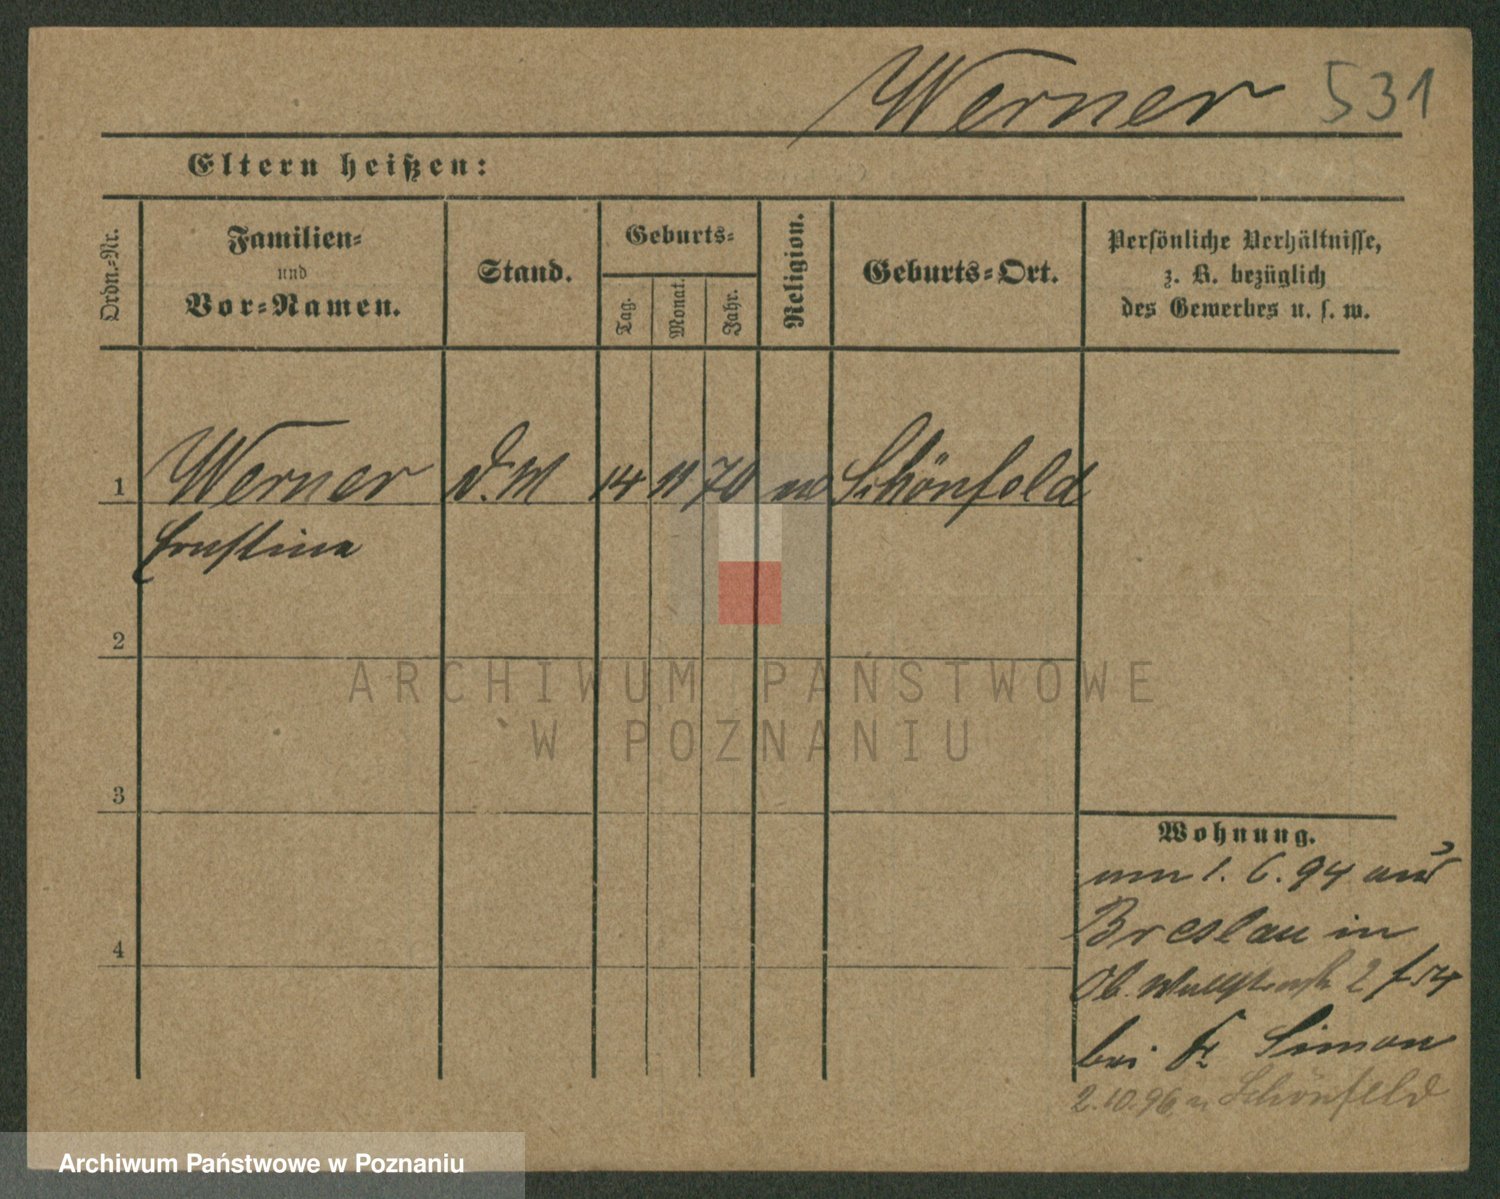 Werner 531
Eltern heißen:
Ordn.-Nr.
Familien-
und
Vor-Namen.
Stand.
Geburts-
Tag.
Monat.
Jahr.
Religion.
Geburts-Ort.
Persönliche Verhältnisse,
z. B. bezüglich
des Gewerbes u. s. w.
1 Werner D.M 14 11 70 Schönfeld
Ernstine
2
3
4
Wohnung.
1. 6. 94 aus
Breslau in
Ob. 2
bei Fr Simon
2.10.96 n Schönfeld
ARCHIWUM PAŃSTWOWE
W POZNANIU
Archiwum Państwowe w Poznaniu